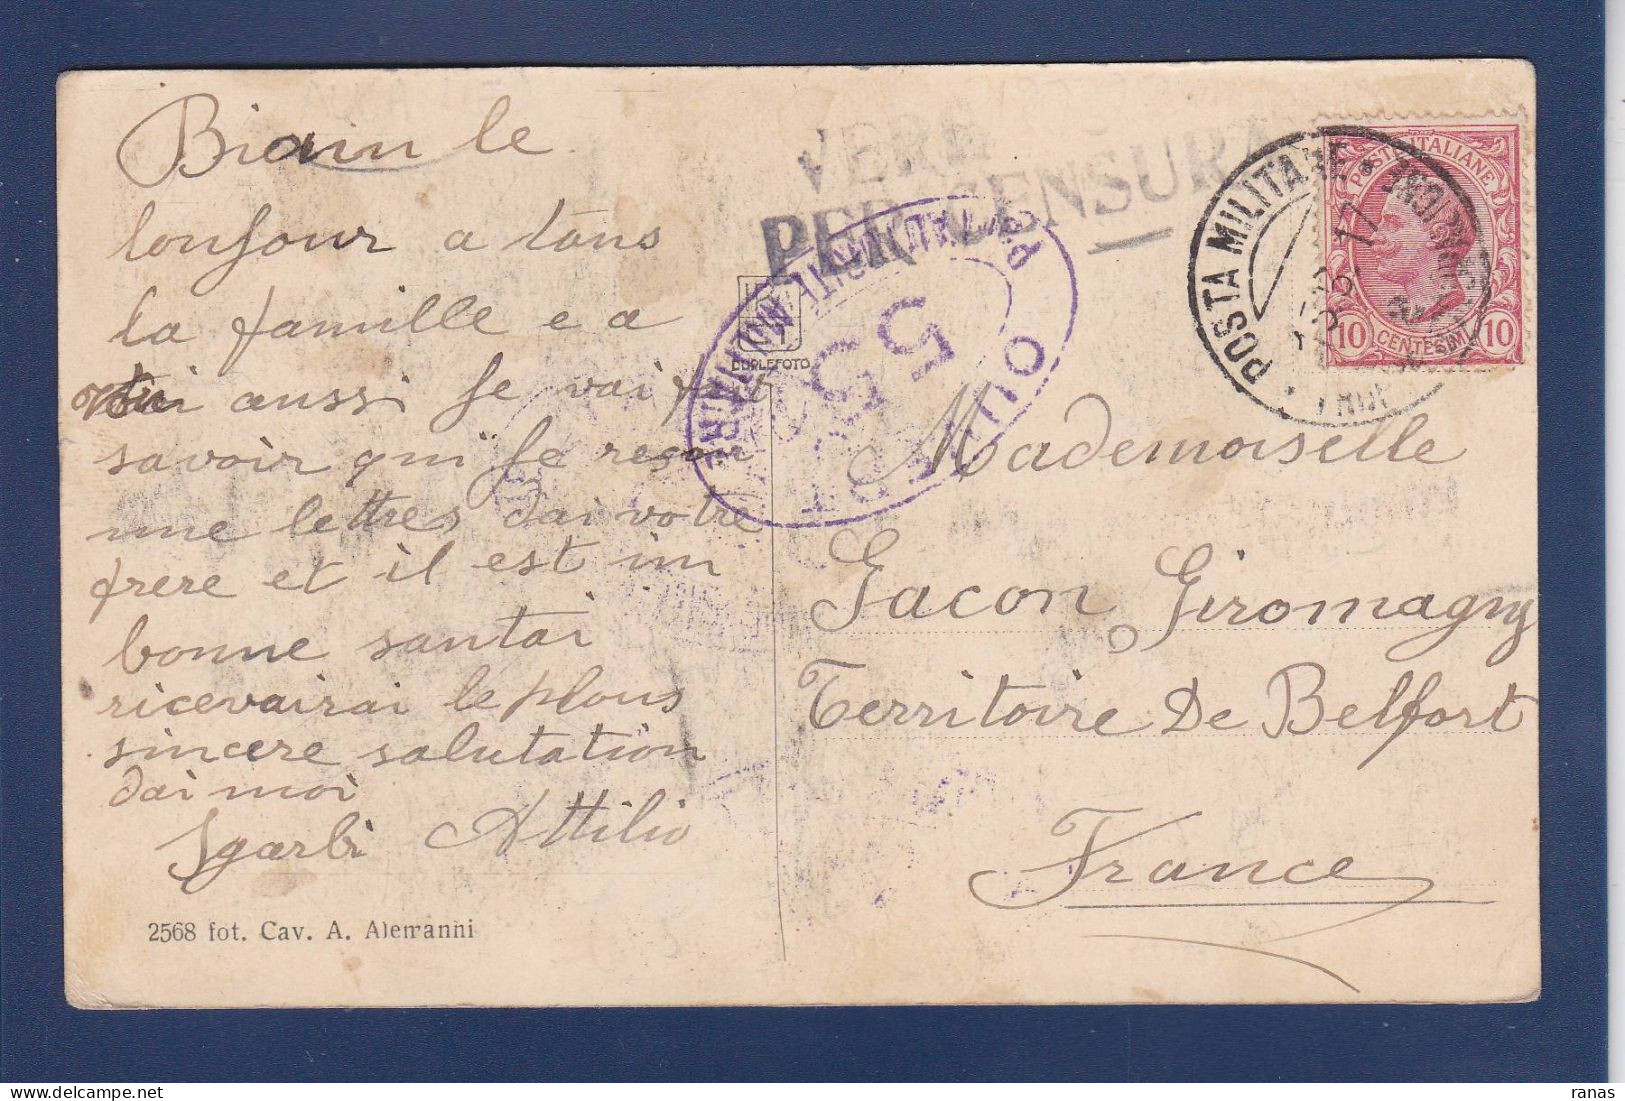 Biain le
bonjour a tous
la famille e a
tui aussi Je vai fair
savoir qui Je reçoir
une lettres dai votre
frere et il est im
bonne santai
ricevairai le plous
sincere salutation
dai moi
Sgarbi Attilio
2568 fot. Cav. A. Alemanni
DUPLEFOTO
PER CENSURA
POSTE ITALIANE
10 CENTESIMI 10
POSTA MILITARE
17
MILITARE
Mademoiselle
Gacon Giromagny
Territoire De Belfort
France
ranas